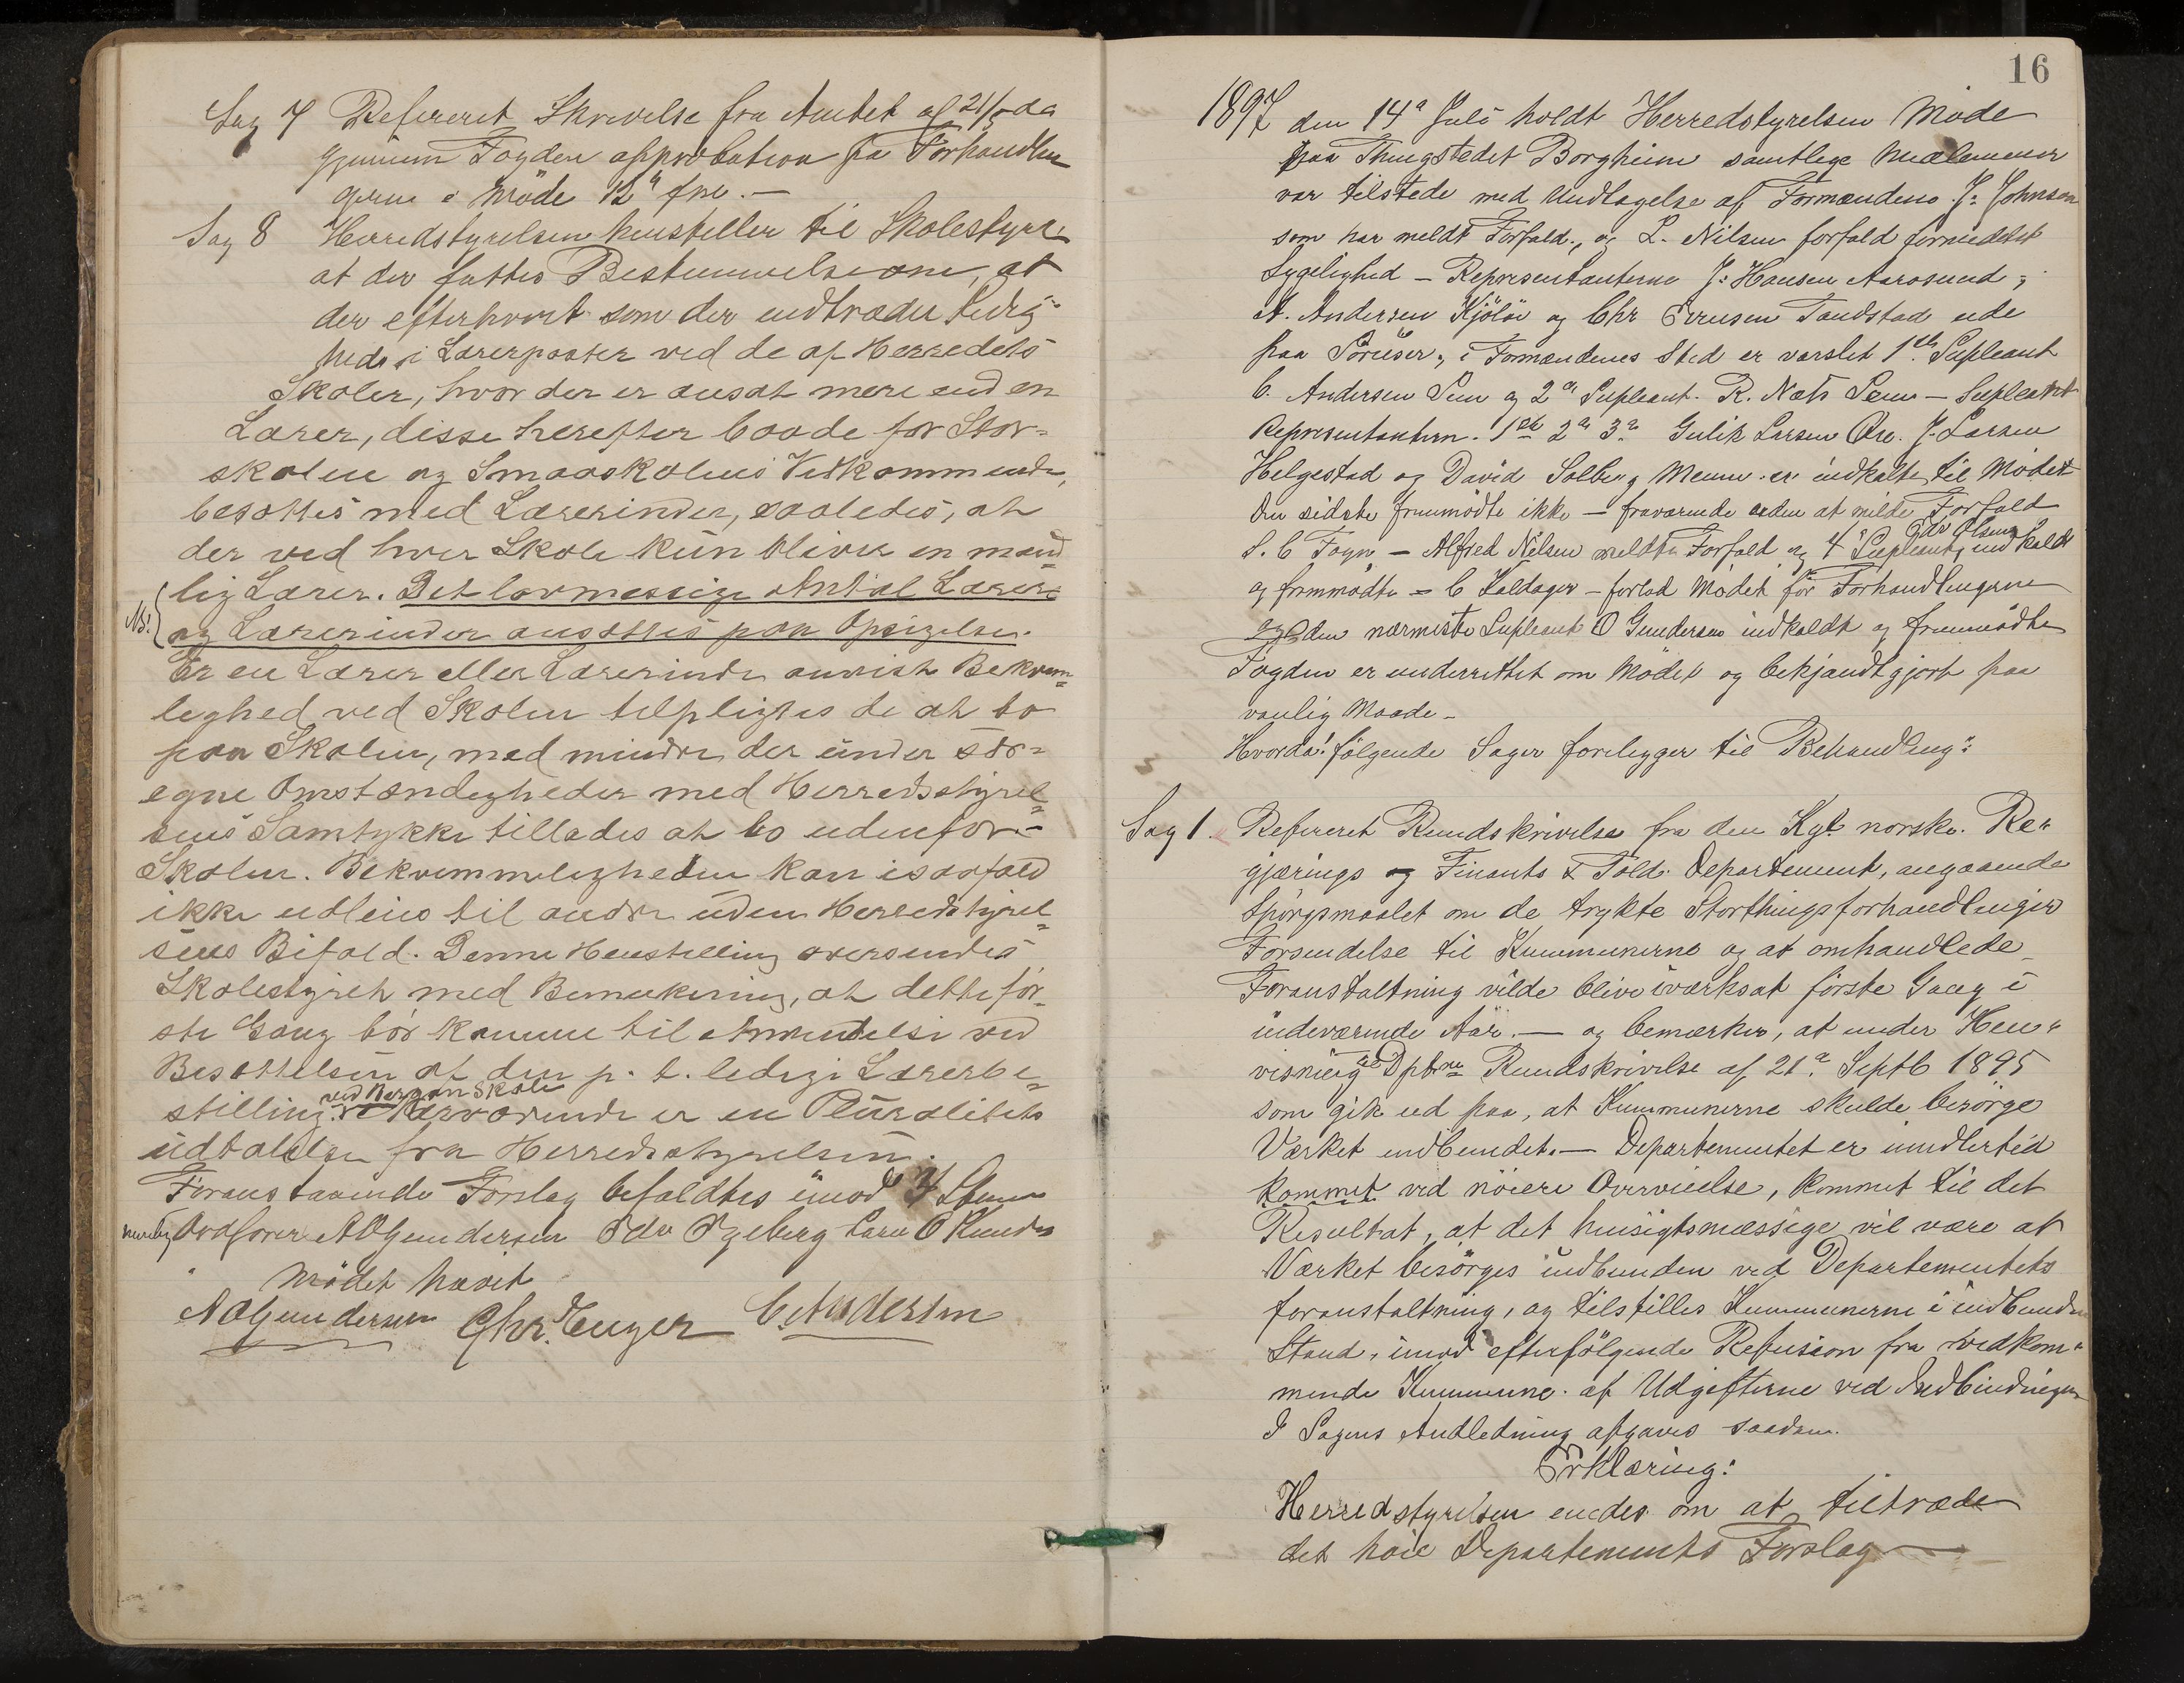 Sag 7 Refereret Skrivelse fra Amtet af 21/5 da
gjennem Fogden approbation paa Forhandlin
gerne i Møde 12te fne. —
Sag 8 Herredstyrelsen henstiller til Skolestyret
at der fattes Bestemmelse om, at
der efterhvert som der indtræder Ledig-
heds i Lærerposter ved de af Herredets
Skoler, hvor der er ansat mere end en
Lærer, disse herefter baade for Stor-
skolen og Smaaskolens Vedkommende,
besættes med Lærerinder, saaledes, at
der ved hver Skole kun bliver en mand-
lig Lærer. Det lovmessige Antal Lærere
NB! og Lærerinder ansættes paa Opsigelse.
Er en Lærer eller Lærerinde anvist Bekvem-
leghed ved Skolen tilpligtes de at bo
paa Skolen, med mindre der under sær-
egne Omstændigheder med Herredsstyrel-
sens Samtykke tillades at bo udenfor
Skolen. Bekvemmeligheden kan isaafald
ikke udleies til andre uden Herredsstyrel-
sens Bifald. Denne Henstilling oversendes
Skolestyret med Bemerkning, at dette før-
ste Gang bør komme til Anvendelse ved
Besættelsen af den p. t. ledige Lærerbe-
ved Bergan Skole
stilling. Nærværende er en Pluralitets
udtalelse fra Herredsstyrelsen.
Foranstaaende Forslag bifaldtes imod 4 Stemmer
nemlig Ordfører A O Gundersen Edv Sjeberg Lars O Knudsen
Mødet hævet
A O Gundersen Chr. Enger C. Andersen
16
1897 den 14de Juli holdt Herredstyrelsen Møde
paa Thingstedet Borgheim samtlige Medlemmer
var tilstede med Undtagelse af Formændene J: Johnsen
som har meldt Forfald, og L. Nilsen forfald formedelst
Sygelighed — Representanterne J: Hansen Aarosund,
A. Andersen Kjøløe og Chr Iversen Tandstad ude
paa Søreiser, i Formændenes Sted er varslet 1ste Supleant
C. Andersen Sem og 2den Supleant. R. Næts Sem — Supleant
Representanten. 1ste 2de 3de Gulik Larsen Øre. J. Larsen
Helgestad og David Solberg Memm. er indkalte til Mødet
den sidste fremmødte ikke — fraværende uden at melde Forfald
Edv Olsen
S. C Fogn — Alfred Nilsen meldte Forfald og 4de Supleant indkaldt
og fremmødte — C Holdager — forlod Mødet før Forhandlingerne
og den nærmeste Supleant O Gundersen indkaldt og fremmødte
Fogden er underrettet om Mødet og bekjendtgjort paa
vanlig Maade —
Hvorda! følgende Sager foreligger til Behandling:
Sag 1. Refereret Rundskrivelse fra den Kgl. norske Re-
gjærings og Finants & Told. Departement, angaaende
Spørgsmaalet om de trykte Storthingsforhandlinger
Forsendelse til Kummunerne og at omhandlede
Foranstaltning vilde blive iværksat første Gang i
indeværende Aar. — og bemærker, at under Hen-
visning til Dptrne Rundskrivelse af 21de Septb 1895
som gik ud paa, at Kummunerne skulde besørge
Værket indbundet. — Departementet er imidlertid
kommet ved nøiere Overveielse, kommet til det
Resultat, at det hensigtsmæssige vil være at
Værket besørges indbunden ved Departementets
foranstaltning, og tilstilles Kummunerne i indbunden
Stand, imod efterfølgende Refusion fra vedkom-
mende Kummune. af Udgifterne ved Indbindingen
I Sagens Andledning afgaves saadan.
Erklæring:
Herredstyrelsen enedes om at tiltræde
det høie Departements Forslag —